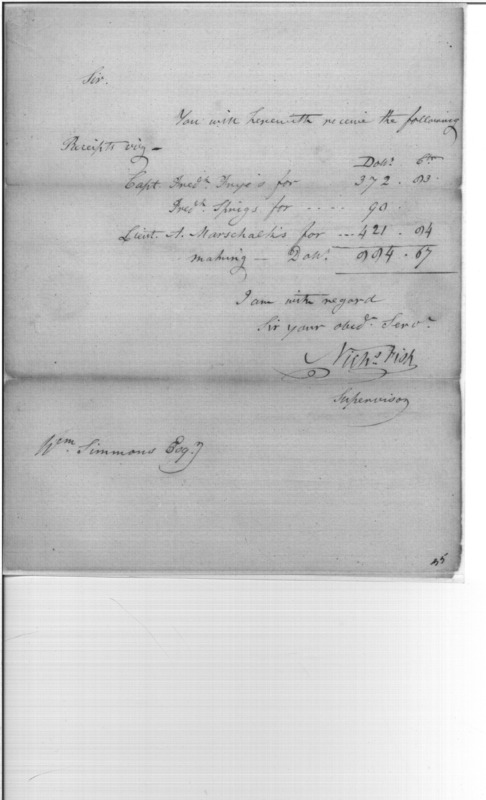 Sir.
You will herewith receive the following
Receipts viz –
Dolls. Cts
Capt. Fredk. Frye's for 372 . 93.
Fredk. Sprigs for ..... 90 .
Lieut. A. Marschalk's for ... 421 . 94
making — Dolls. 884 . 87
I am with regard
Sir your obedt. Servt.
Nichs Fish
Supervisor
Wm. Simmons Esqr.